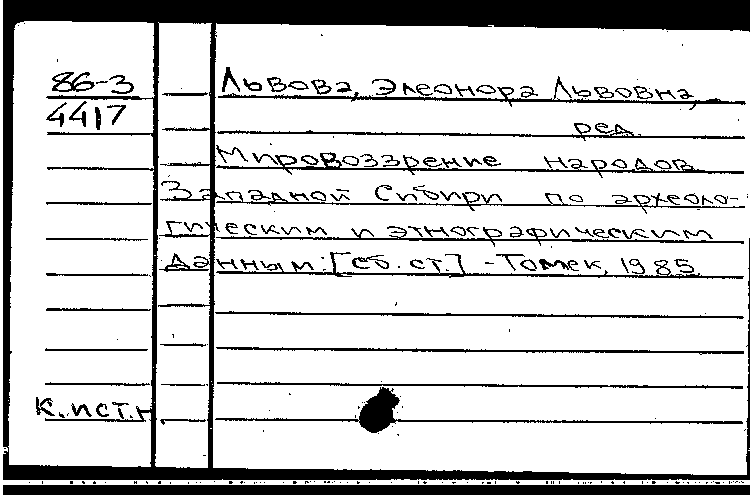 86-3
4417
Львова, Элеонора Львовна,
ред.
Мировоззрение народов
Западной Сибири по археоло-
гическим и этнографическим
данным: [сб. ст.] - Томск, 1985
к. ист. н.